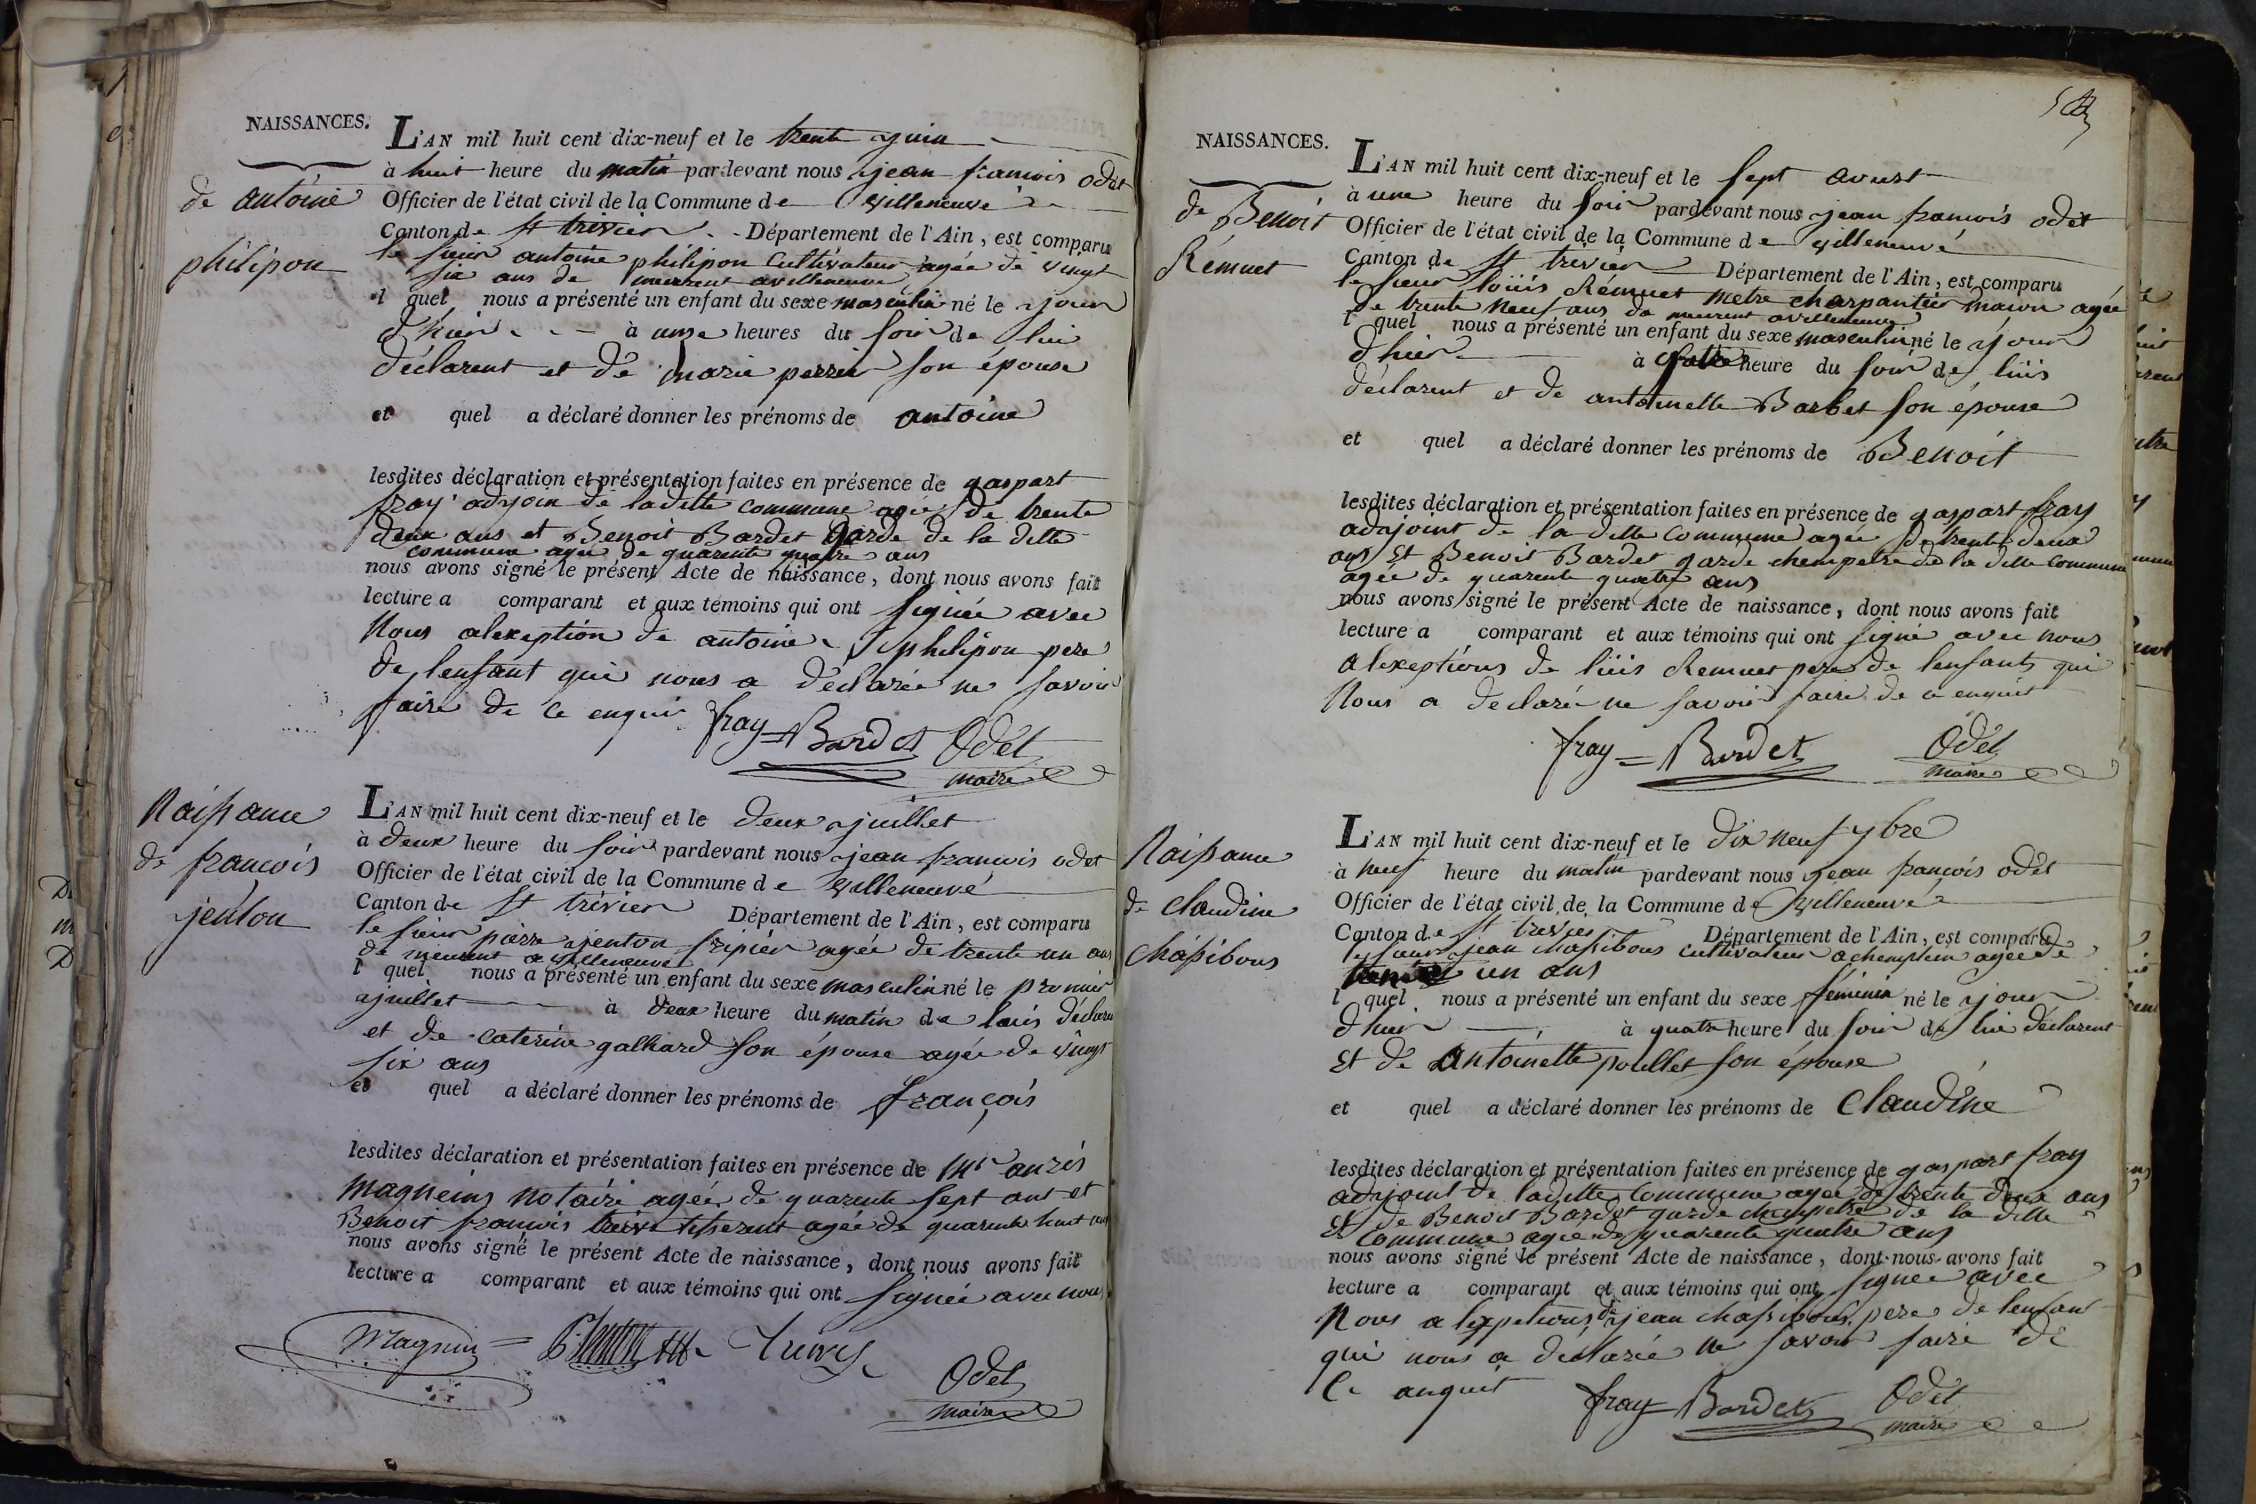 NAISSANCES.
de antoine
philipon
L'AN mil huit cent dix-neuf et le trente juin
à huit heure du matin pardevant nous jean francois odet
Officier de l'état civil de la Commune de villeneuve
Canton de st trivier Département de l'Ain, est comparu
le sieur antoine philipon Cultivateur agée de vingt
six ans de meurent avilleneuve
l quel nous a présenté un enfant du sexe masculin né le jour
d'hier à unse heures du soir de lui
déclarent et de marie perrier son épouse
et quel a déclaré donner les prénoms de antoine
lesdites déclaration et présentation faites en présence de gaspart
fray adjoin de ladite commune agée de trente
deux ans et Benoit Bardet garde de la ditte
commune agée de quarente quatre ans
nous avons signé le présent Acte de naissance, dont nous avons fait
lecture a comparant et aux témoins qui ont signée avec
Nous alexeption de antoine philipon pere
de lenfant qui nous a déclarée ne savoir
faire de ce enquis
fray Bardet Odet
maire
Naissance
de francois
jenton
L'AN mil huit cent dix-neuf et le deux juillet
à deux heure du soir pardevant nous jean francois odet
Officier de l'état civil de la Commune de villeneuve
Canton de st trivier Département de l'Ain, est comparu
le sieur pierre jenton fripier agée de trente un ans
de meurent a villeneuve
l quel nous a présenté un enfant du sexe masculin né le promier
juillet à deux heure du matin de
et de caterine galhard son épouse agée de vingt
six ans
et quel a déclaré donner les prénoms de françois
lesdites déclaration et présentation faites en présence de Mr
magneins notaire agée de quarente sept ans et
Benoit francois tisserent agée de quarente huit ans
nous avons signé le présent Acte de naissance, dont nous avons fait
lecture a comparant et aux témoins qui ont signée avec nous
Magnin
Odet
maire
NAISSANCES.
de Benoit
Rémuet
L'AN mil huit cent dix-neuf et le sept avust
à une heure du soir pardevant nous jean francois odet
Officier de l'état civil de la Commune de villeneuve
Canton de st trivier Département de l'Ain, est comparu
le sieur Rémuet metre charpantier macon agée
de trente neuf ans de meurent avilleneuve
l quel nous a présenté un enfant du sexe masculin né le jour
d'hier à heure du soir de
déclarent et de antoinette Barbet son épouse
et quel a déclaré donner les prénoms de Benoit
lesdites déclaration et présentation faites en présence de gaspart fray
adjoint de la ditte commune agée de trente deux
ans Et Benoit Bardet garde chempetre de la ditte commune
agée de quarente quatre ans
nous avons signé le présent Acte de naissance, dont nous avons fait
lecture a comparant et aux témoins qui ont signé avec nous
alexeptions de Remuet pere de lenfant qui
Nous a declaré ne savoir faire de ce enquis
fray Bardet Odet
maire
Naissance
de claudine
chassibous
L'AN mil huit cent dix-neuf et le dix neuf 7bre
à neuf heure du matin pardevant nous jean francois odet
Officier de l'état civil de la Commune de villeneuve
Canton de st trivier Département de l'Ain, est comparu
le sieur jean chassibous cultivateur agée de
un ans
l quel nous a présenté un enfant du sexe féminin né le jour
d'hier à quatre heure du soir de lui déclarent
Et de antoinette poullet son épouse
et quel a déclaré donner les prénoms de Claudine
lesdites déclaration et présentation faites en présence de gaspart fray
adjoint de laditte commune agée de trente deux ans
Et de Benoit Bardet garde chempetre de la ditte
commune agée de quarente quatre ans
nous avons signé le présent Acte de naissance, dont nous avons fait
lecture a comparant et aux témoins qui ont signée avec
Nous de jean chassibous pere de lenfant
qui nous a déclarée ne savoir faire de
Ce anquit
fray Bardet Odet
maire